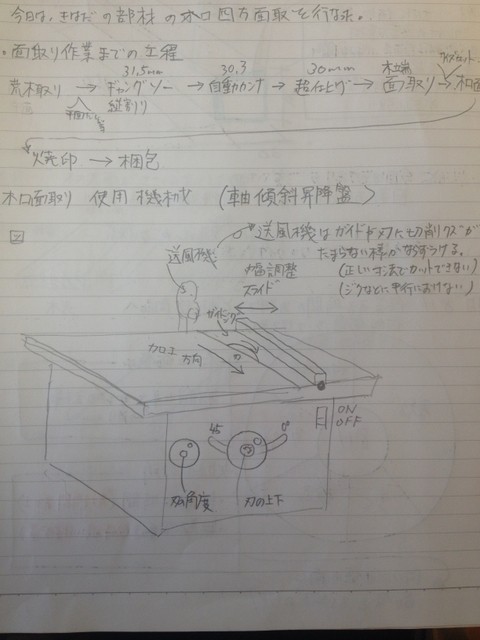 今日は、きはだの部材の木口四方面取を行なった。
・面取り作業までの工程
31.5mm 30.3 30mm 木端 サイズカット
荒木取り → ギャングソー → 自動カンナ → 超仕上げ → 面取り → 木口面
縦割り
焼印 → 梱包
木口面取り 使用機械 (軸傾斜昇降盤)
図
送風機はガイドや刃に切削クズが
たまらない様かならずつける。
送風機
(正しい寸法でカットできない)
(ジクなどに平行におけない)
幅調整
スライド
ガイド
加工
方向
刃
ON
OFF
45 0°
刃の角度 刃の上下